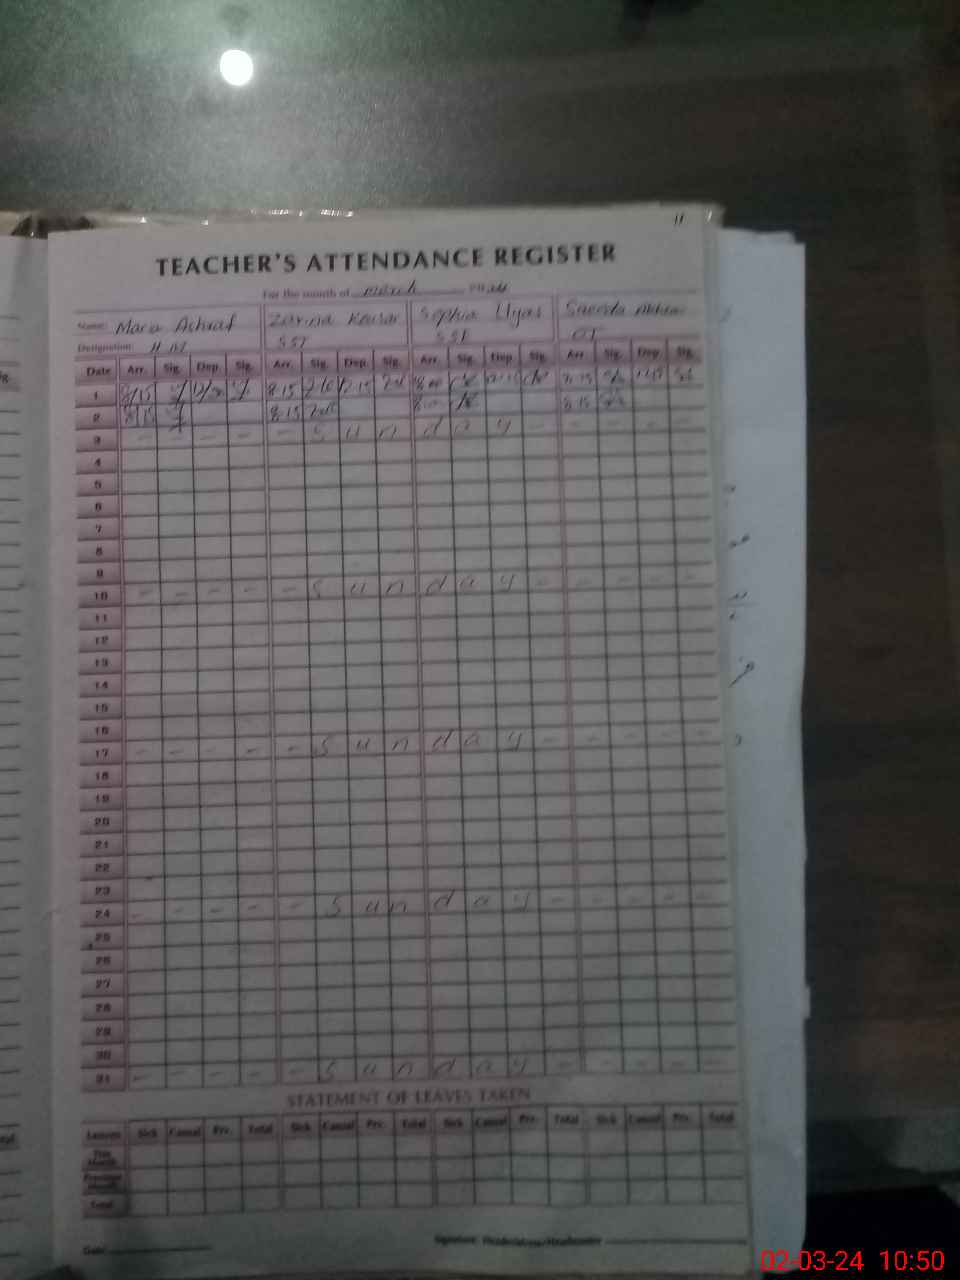 11
TEACHER'S ATTENDANCE REGISTER
For the month of march
Name: Maria Ashraf Zarina Kousar Sophia Ilyas Saeeda Akhtar
Designation: H M SST SST OT
Date Arr. Sig. Dep. Sig. Arr. Sig. Dep. Sig. Arr. Sig. Dep. Sig. Arr. Sig. Dep. Sig.
1 8/15 8:15 12:15 8:00 8:15
2 8/15 8:15 8:15
3 - - - - - S u n d a y - - - - -
4
5
6
7
8
9
10 - - - - - S u n d a y - - - - -
11
12
13
14
15
16
17 - - - - - S u n d a y - - - - -
18
19
20
21
22
23
24 - - - - - S u n d a y - - - - -
25
26
27
28
29
30
31 - - - - - S u n d a y - - - - -
STATEMENT OF LEAVES TAKEN
Leaves Sick Casual Prv. Total Sick Casual Prv. Total Sick Casual Prv. Total Sick Casual Prv. Total
This Month
Previous Month
Total
Date
Signature Headmistress/Headmaster
02-03-24 10:50